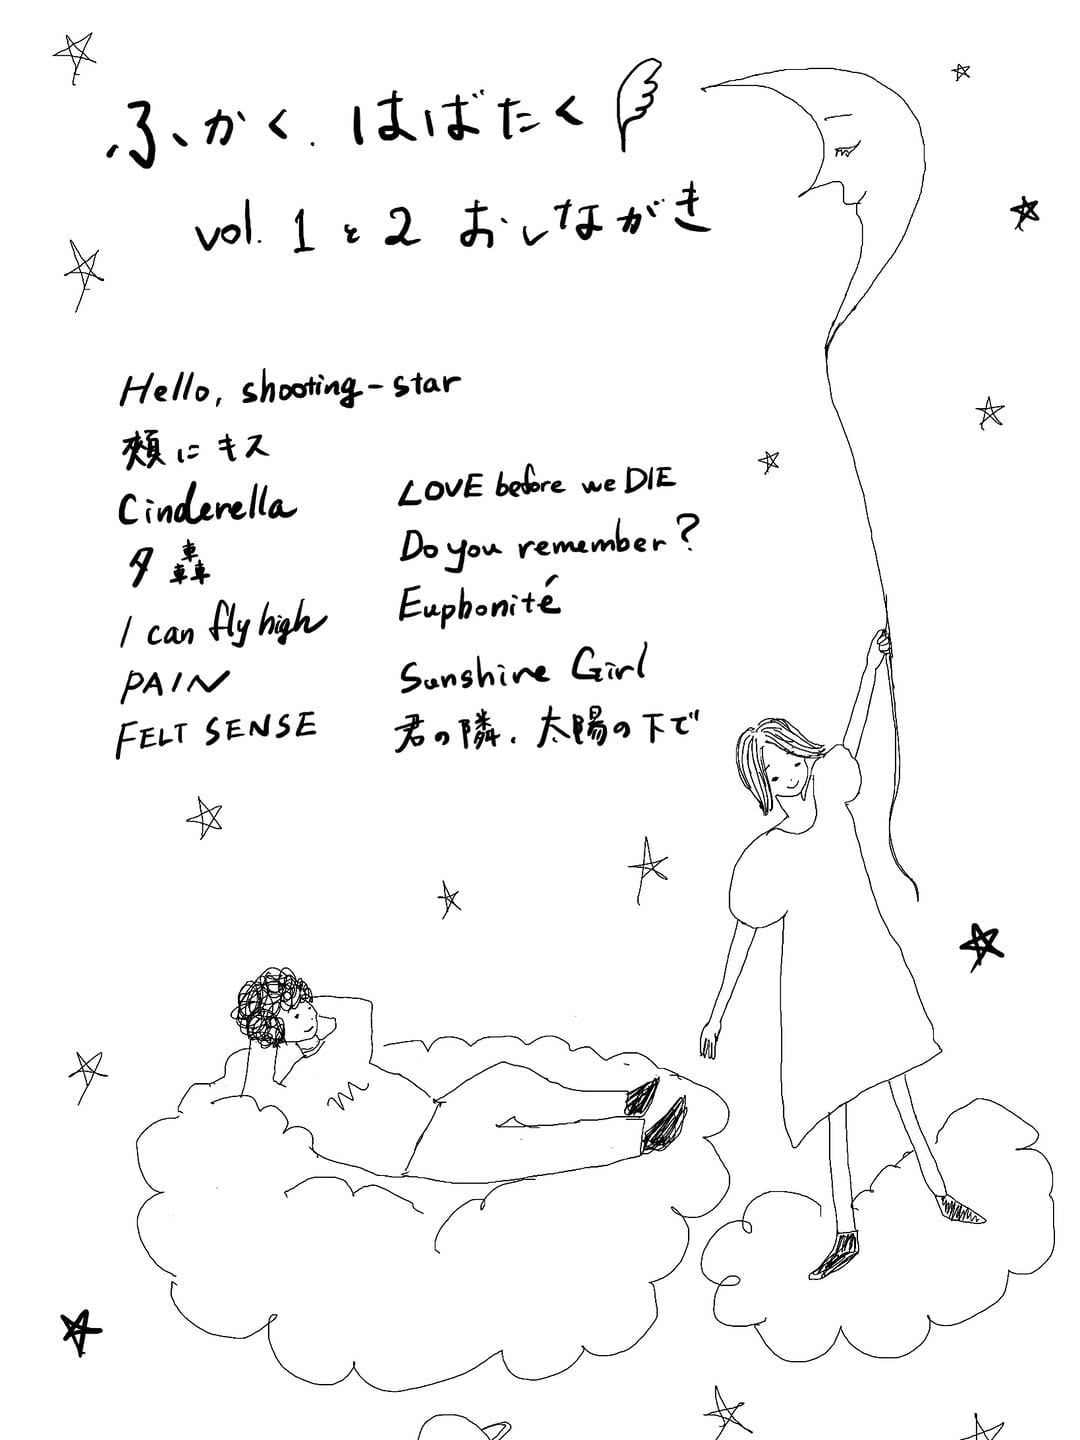 ふかく、はばたく
vol. 1 と 2 おしながき
Hello, shooting-star
頬にキス
Cinderella
夕轟
I can fly high
PAIN
FELT SENSE
LOVE before we DIE
Do you remember?
Euphonité
Sunshine Girl
君の隣、太陽の下で